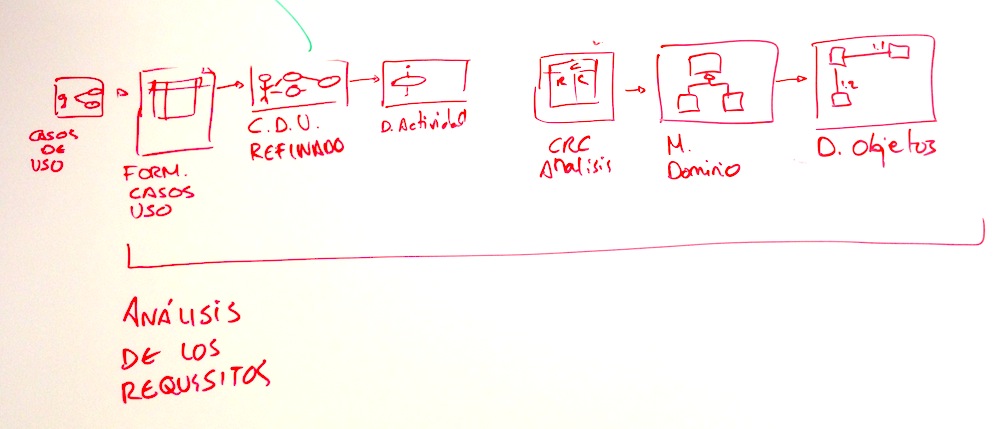 CASOS
DE
USO
FORM.
CASOS
USO
C.D.U.
REFINADO
D. Actividad
R
C
CRC
Análisis
M.
Dominio
1.1
1.2
D. Objetos
ANÁLISIS
DE LOS
REQUISITOS